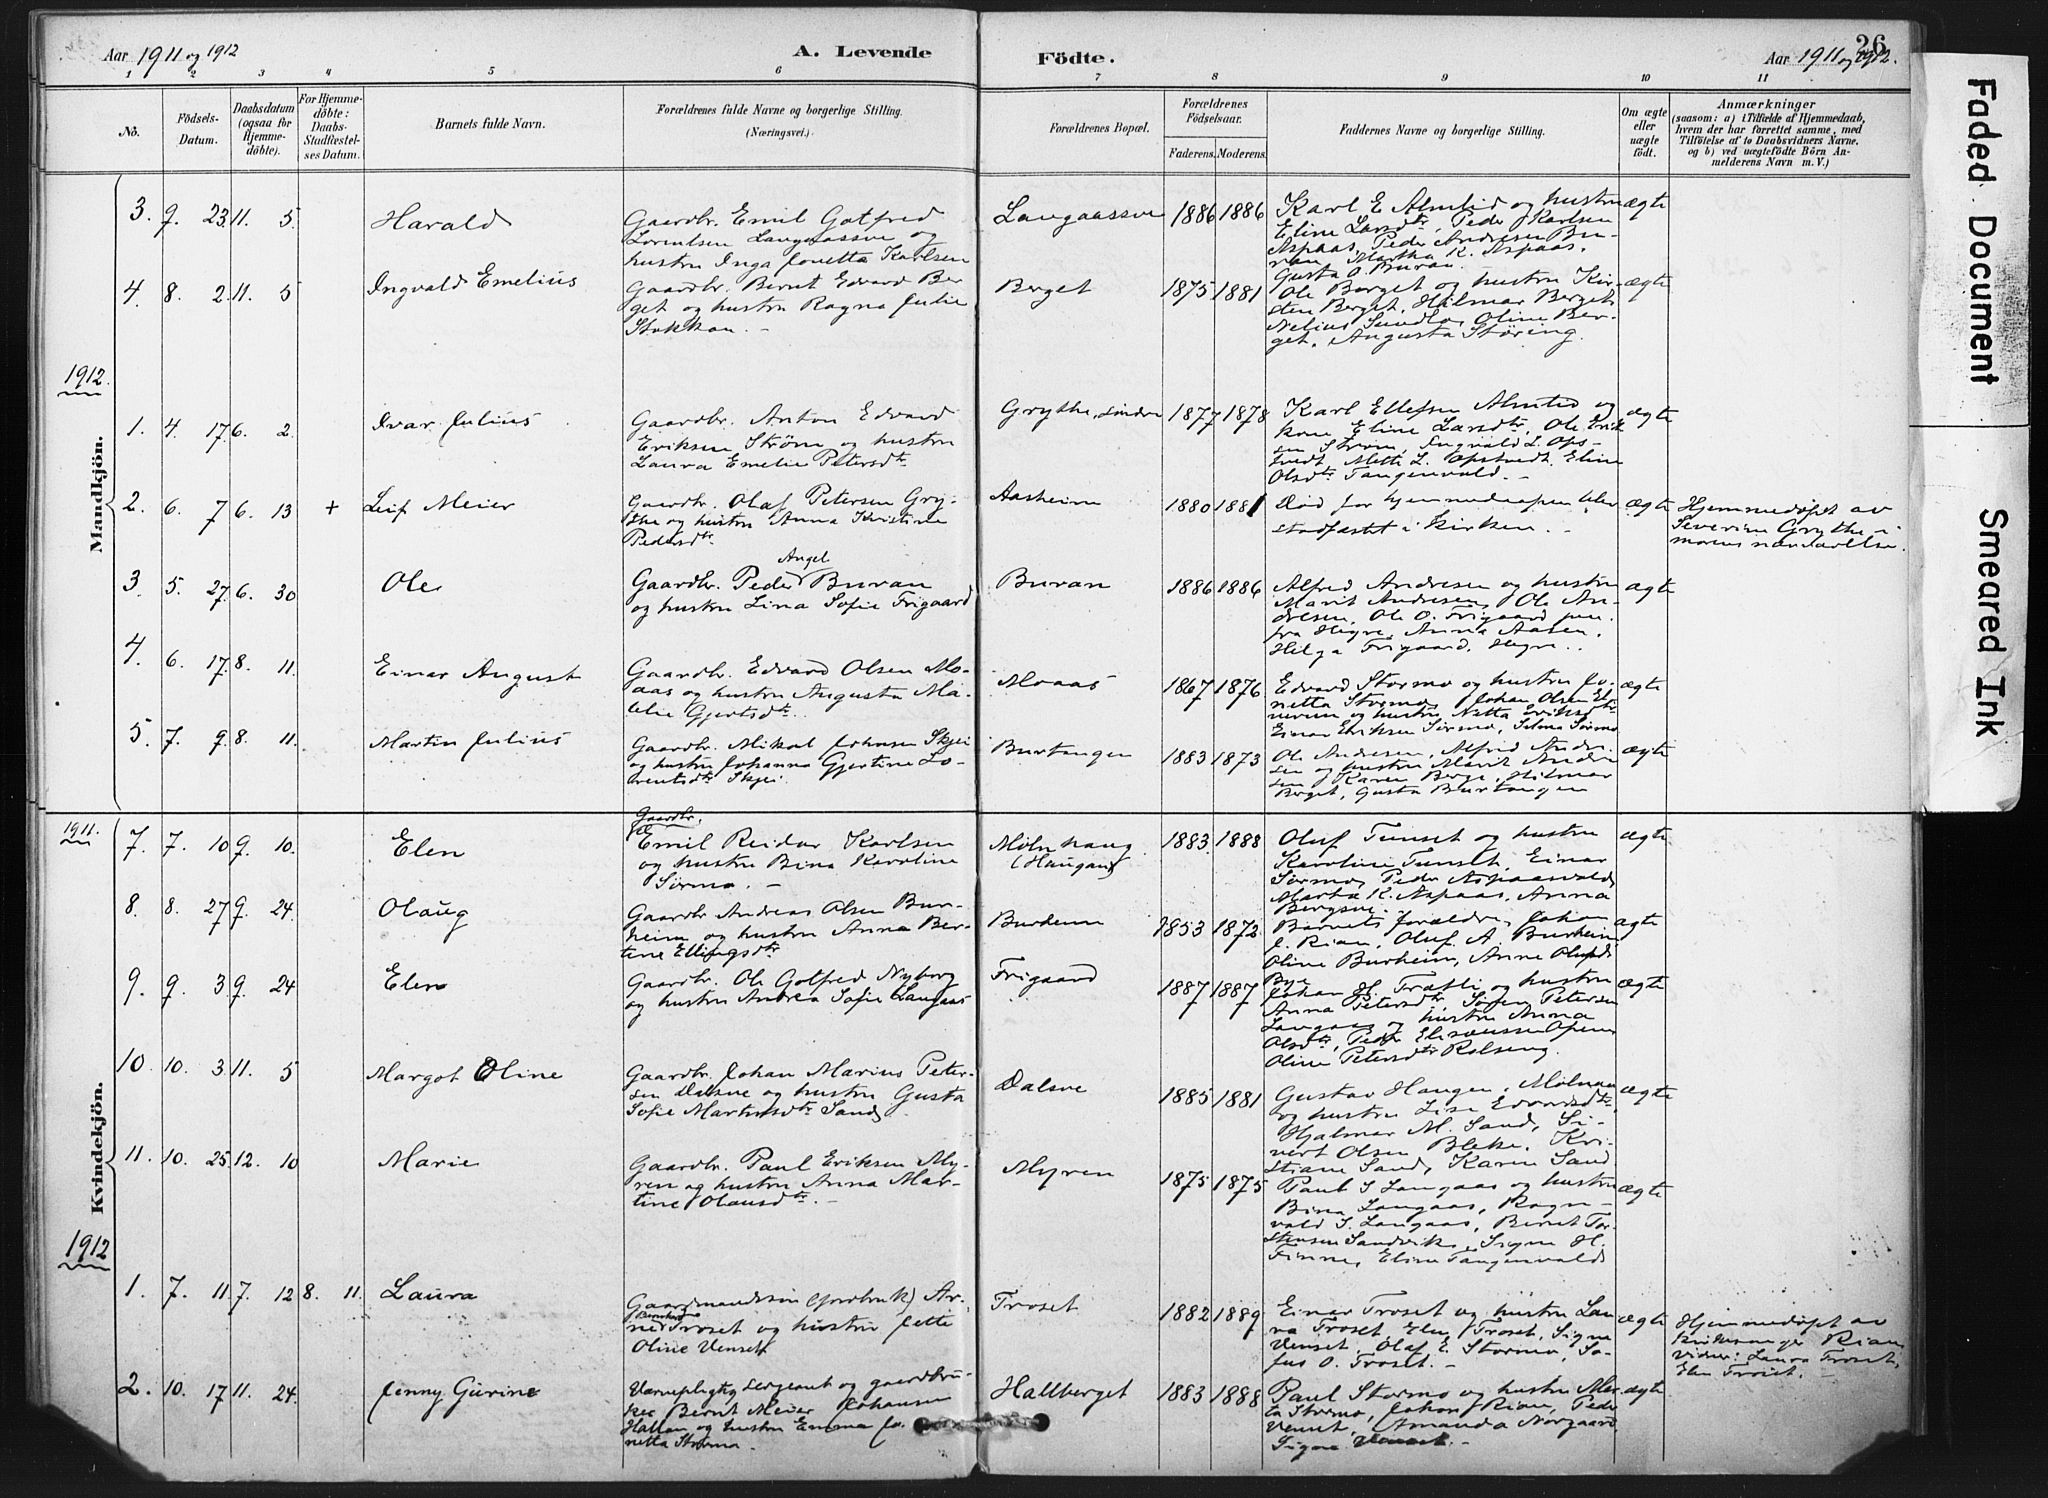 Aar 1911 og 1912
A. Levende
Födte.
Aar 1911 og 1912.
26
1 2 3 4 5 6 7 8 9 10 11
No.
Födsels-Datum.
Daabsdatum (ogsaa for Hjemmedöbte).
For Hjemmedöbte: Daabs-Stadfæstelses Datum.
Barnets fulde Navn.
Forældrenes fulde Navne og borgerlige Stilling.
(Næringsvei.)
Forældrenes Bopæl.
Forældrenes Födselsaar.
Faderens. Moderens.
Faddernes Navne og borgerlige Stilling.
Om ægte eller uægte födt.
Anmærkninger
(saasom: a) i Tilfælde af Hjemmedaab, hvem der har forrettet samme, med Tilföielse af to Daabsvidners Navne. og b) ved uægtefödte Börn Anmelderens Navn m. V.)
Mandkjön.
3. 9. 23 11. 5 Harald
Gaardbr. Emil Gotfred
Lorentsen Langaassve og
hustru Inga Jonetta Karlsen
Langaassve 1886 1886
Karl E Almlid og hustru
Eline Larsdtr, Peder Karlsen
Aspaas, Peder Andresen Bu-
ran, Martha K. Aspaas,
Gusta O. Buran.
ægte
4. 8. 2 11. 5 Ingvald Emelius
Gaardbr. Bernt Edvard Ber-
get og hustru Ragna Julie
Stokkan.
Berget 1875 1881
Ole Berget og hustru Kir-
sten Berget, Hilmar Berget
Nelius Sundlo, Oline Ber-
get, Augusta Støring.
ægte
1912.
1. 4. 17 6. 2. Ivar Julius
Gaardbr. Anton Edvard
Eriksen Strøm og hustru
Laura Emelie Petersdtr
Grythe, 1877 1878
Karl Ellefsen Almlid og
kone Eline Larsdtr, Ole Erik-
sen Strøm, Ingvald L. Ops-
tvedt, Mette L. Opstvedt, Eline
Olsdtr Tangenvald.
ægte
2. 6. 7 6. 13 + Leif Meier
Gaardbr. Olaf Petersen Gry-
the og hustru Anna Kristine
Pedersdtr.
Aasheim 1880 1881
Død før hjemmedaapen blev
stadfæstet i kirken.
ægte
Hjemmedøpt av
Severine Grythe i
morens nærværelse.
3. 5. 27. 6. 30 Ole
Angel
Gaardbr. Peder Buran
og hustru Lina Sofie Frigaard
Buran 1886 1886
Alfred Andresen og hustru
Marit Andresen, Ole An-
dresen, Ole O. Frigaard jun.
fra Hegre, Anna Aasen,
Helga Frigaard, Hegre.
ægte
4. 6. 17. 8. 11. Einar August
Gaardbr. Edvard Olsen Mo-
aas og hustru Augusta Ma-
telie Gjertsdtr.
Moaas 1867 1876
Edvard Stormo og hustru Jo-
netta Stormo, Johan Olsen El-
verum og hustru Netta Eriksdtr
Einar Eriksen Sørmo, Selma Sørmo
ægte
5. 7. 9. 8. 11. Martin Julius
Gaardbr. Mikal Johnsen Skjei
og hustru Johanna Gjertine Lo-
rentsdtr Skjei
Burtangen 1883 1873
Ole Andresen, Alfred Andre-
sen og hustru Marit Andre-
sen Karen Berge, Hilmar
Berget, Gusta Burtangen
ægte
Kvindekjön.
1911.
7. 7. 10 9. 10. Elen
Gaardbr.
Emil Reidar Karlsen
og hustru Bina Karoline
Sørmo.
Molnhaug
(Haugan) 1883 1888
Oluf Tunset og hustru
Karoline Tunset, Einar
Sørmo, Peder Aspaasvald
Marta K. Aspaas, Anna
Bergsve.
ægte
8. 8. 27 9. 24. Olaug
Gaardbr Andreas Olsen Bur-
heim og hustru Anna Ber-
tine Ellingsdtr
Burheim 1853 1872
Barnets forældre, Johan
J. Rian, Oluf A. Burheim
Oline Burheim, Anne Olufsd.
Bye
ægte
9. 9. 3 9. 24 Elen
Gaardbr. Ole Gotfred Nyborg
og hustru Andrea Sofie Langaas
Frigaard 1887 1887
Johan H. Træthi og hustru
Anna Petersdtr, Søren Petersen
Langaas og hustru Anna
Olsdtr, Peder Elisæussen Opem
Oline Petersdtr Rolseng.
ægte
10. 10. 3 11. 5 Margot Oline
Gaardbr. Johan Marius Peter-
sen Dalsve og hustru Gusta
Sofie Martinusdtr Sand.
Dalsve 1885 1881
Gustav Haugen, Molnaa
og hustru Lise Edvardsdtr,
Hjalmar M. Sand, Si-
vert Olsen Bleke, Kri-
stiane Sand, Karen Sand
ægte
11. 10. 25 12. 10 Marie
Gaardbr. Paul Eriksen My-
ren og hustru Anna Mar-
tine Olausdtr.
Myren 1875 1875
Paul S Langaas og hustru
Bina Langaas, Ragn-
vald S. Langaas, Bernt Tor-
stensen Sandvik, Signe H.
Finne, Eline Tangenvald
ægte
1912
1. 7. 11. 7. 12 8. 11. Laura
Gaardmandssøn (jordbruk) Ar-
Bernhard
ne Troset og hustru Jette
Oline Venset
Troset 1882 1889
Einar Troset og hustru Lau-
ra Troset, Elen Troset, Signe
Venset, Olaf E. Stormo, So-
fus O. Troset.
ægte
Hjemmedøpt av
kirkesanger Rian
vidner: Laura Troset,
Elen Troset.
2. 10. 17 11. 24. Jenny Gurine
Værnepligtig sergeant og gaardbru-
ker Bernt Meier Johansen
Hallan og hustru Emma Jo-
netta Stormo.
Hallberget 1883 1888
Paul Stormo og hustru Mar-
ta Stormo, Johan J Rian, Peder
Venset, Amanda Norgaard,
Signe Venset.
ægte
Faded Document
Smeared Ink